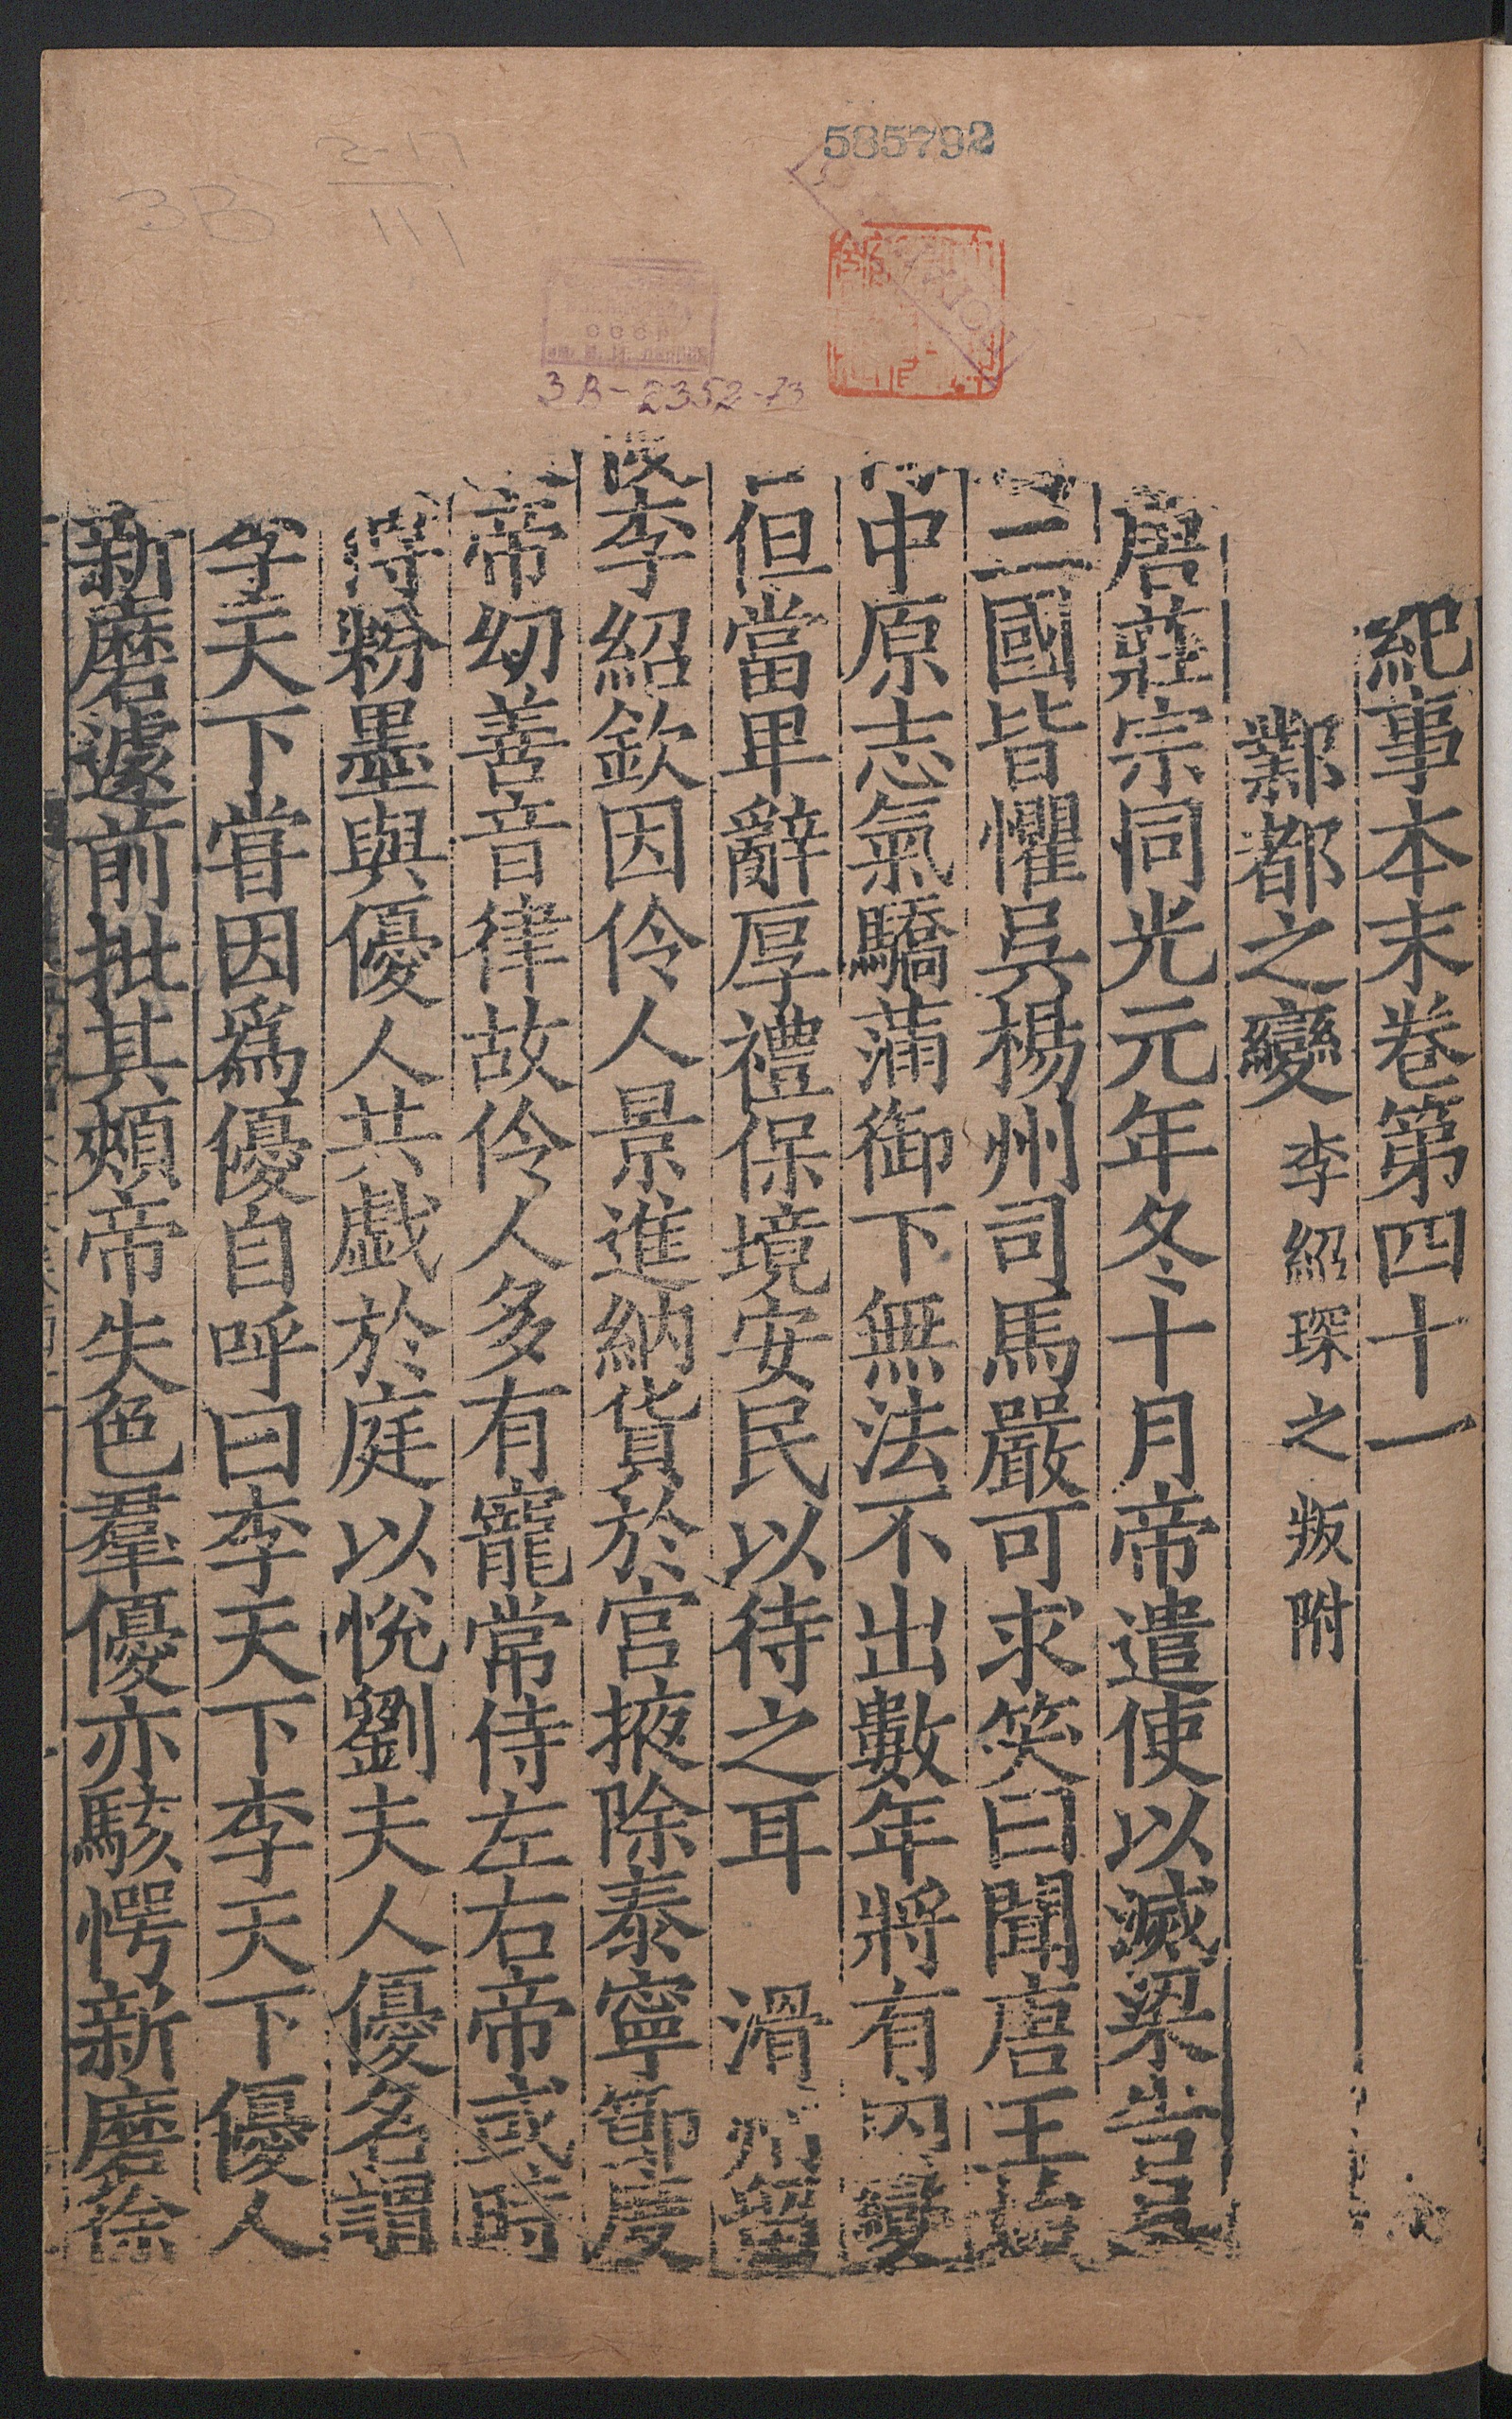 585792
3B-2352-73
2-17
111
3B
紀事本末卷第四十一
鄴都之變 李紹琛之叛附
唐莊宗同光元年冬十月帝遣使以滅梁告吳
二國皆懼吳楊州司馬嚴可求笑曰聞唐王始
中原志氣驕滿御下無法不出數年將有內變
但當卑辭厚禮保境安民以待之耳 滑州留
後李紹欽因伶人景進納貨於宮掖除泰寧節度
帝幼善音律故伶人多有寵常侍左右帝或時
粉墨與優人共戯於庭以悅劉夫人優名謂
李天下嘗因爲優自呼曰李天下李天下優人
新磨遽前批其頰帝失色羣優亦駭愕新磨徐